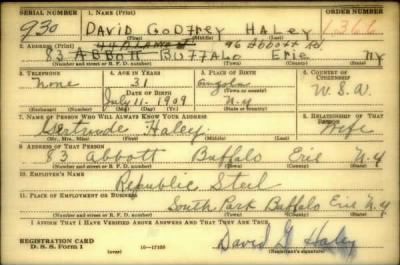 SERIAL NUMBER 1. NAME (Print) ORDER NUMBER
930 DAVID GODFREY HALEY
2. ADDRESS (Print) 96 Abbott Rd
83 ABBOTT BUFFALO ERIE NY
(Number and street or R. F. D. number) (Town) (County) (State)
3. TELEPHONE 4. AGE IN YEARS 5. PLACE OF BIRTH 6. COUNTRY OF CITIZENSHIP
None 31 Angola
DATE OF BIRTH (Town or county) U.S.A.
July 11- 1909 N-Y
(Exchange) (Number) (Mo.) (Day) (Yr.) (State or country)
7. NAME OF PERSON WHO WILL ALWAYS KNOW YOUR ADDRESS 8. RELATIONSHIP OF THAT PERSON
Gertrude Haley Wife
(Mr., Mrs., Miss) (First) (Middle) (Last)
9. ADDRESS OF THAT PERSON
83 Abbott Buffalo Erie N.Y
(Number and street or R. F. D. number) (Town) (County) (State)
10. EMPLOYER'S NAME
Republic Steel
11. PLACE OF EMPLOYMENT OR BUSINESS
South Park Buffalo Erie N.Y
(Number and street or R. F. D. number) (Town) (County) (State)
I AFFIRM THAT I HAVE VERIFIED ABOVE ANSWERS AND THAT THEY ARE TRUE.
REGISTRATION CARD
D. S. S. Form 1 (over) 16—17105 David G Haley
(Registrant's signature)